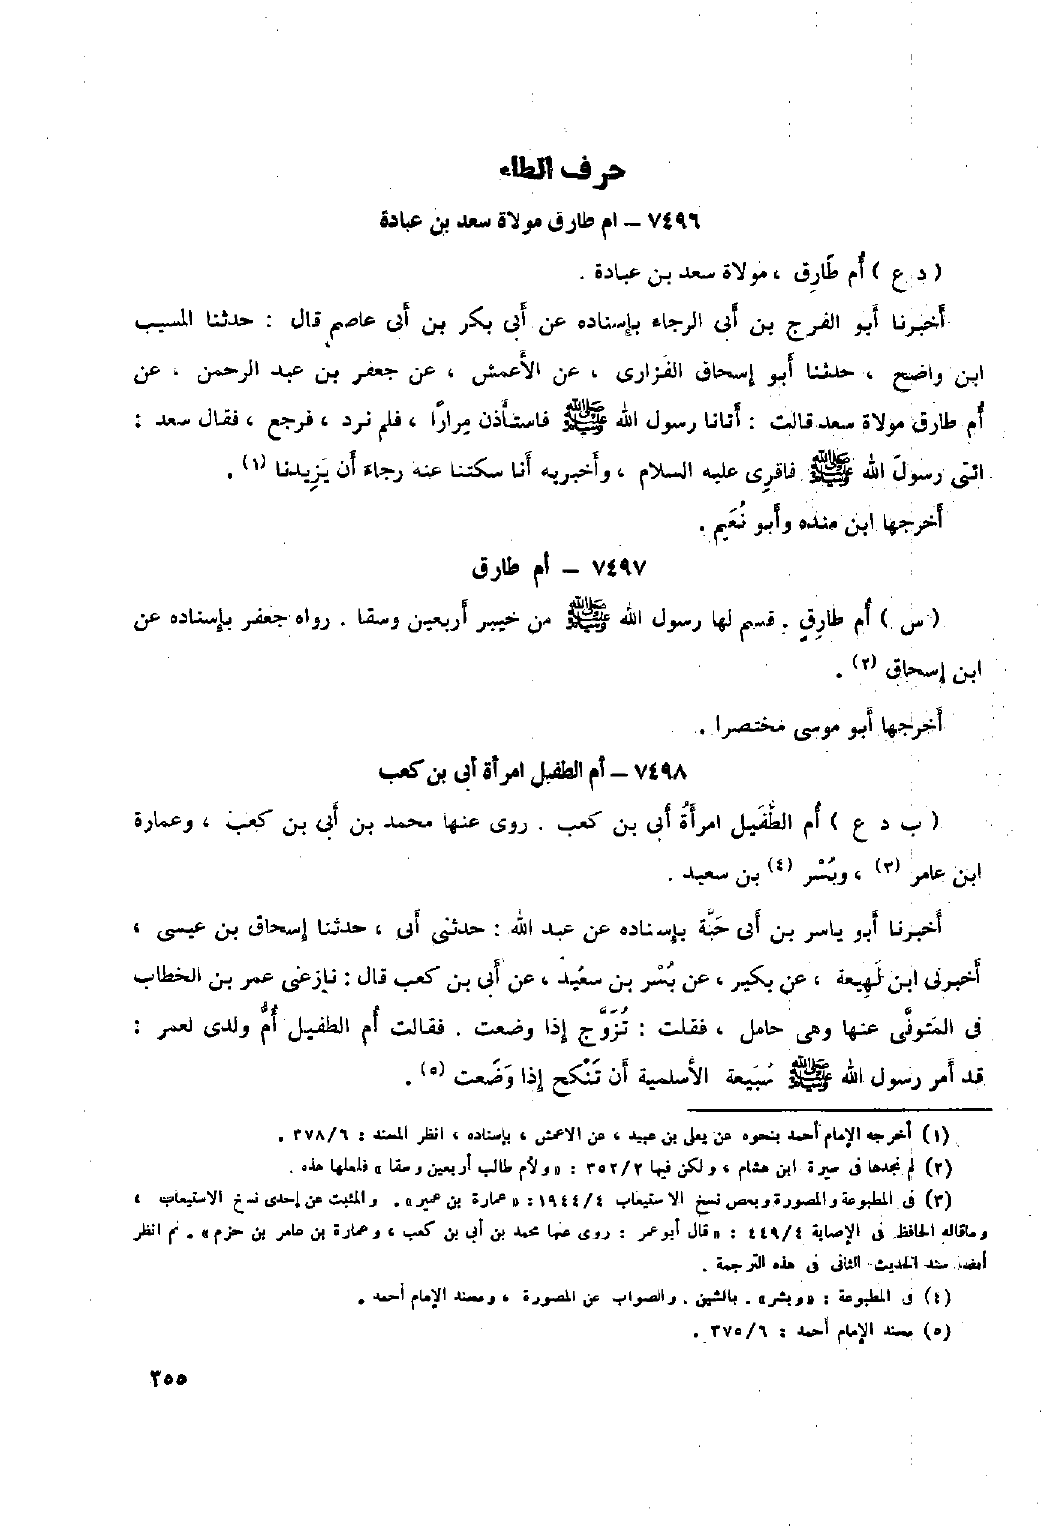 حرف الطاء
٧٤٩٦ – ام طارق مولاة سعد بن عبادة
( د ع ) أُم طَارِق ، مولاة سعد بن عبادة .
أَخبرنا أَبو الفرج بن أَبى الرجاء بإِسناده عن أَبى بكر بن أَبى عاصم قال : حدثنا المسيب
ابن واضح ، حدثنا أَبو إسحاق الفزارى ، عن الأَعمش ، عن جعفر بن عبد الرحمن ، عن
أُم طارق مولاة سعد قالت : أَتانا رسول الله ﷺ فاستأْذن مِرارًا ، فلم نرد ، فرجع ، فقال سعد :
ائتى رسولَ الله ﷺ فاقرِى عليه السلام ، وأَخبريه أَنا سكتنا عنه رجاءَ أَن يَزِيدنا (١) .
أَخرجها ابن منده وأَبو نُعَيم .
٧٤٩٧ – أم طارق
( س ) أُم طارِقٍ . قسم لها رسول الله ﷺ من خيبر أَربعين وسقا . رواه جعفر بإِسناده عن
ابن إسحاق (٢) .
أَخرجها أَبو موسى مختصرا .
٧٤٩٨ – أم الطفيل امرأة أبى بن كعب
( ب د ع ) أُم الطُّفَيل امرأَةُ أَبى بن كعب . روى عنها محمد بن أَبى بن كعب ، وعمارة
ابن عامر (٣) ، وبُسْر (٤) بن سعيد .
أَخبرنا أَبو ياسر بن أَبى حَبَّة بإِسناده عن عبد الله : حدثنى أَبى ، حدثنا إسحاق بن عيسى ،
أَخبرنى ابن لَهِيعة ، عن بكير ، عن بُسْر بن سعيد ، عن أَبى بن كعب قال : نازعنى عمر بن الخطاب
فى المَتوفَّى عنها وهى حامل ، فقلت : تُزَوَّج إذا وضعت . فقالت أُم الطفيل أُمُّ ولدى لعمر :
قد أَمر رسول الله ﷺ سُبَيعة الأَسلمية أَن تَنْكح إذا وَضَعت (٥) .
(١) أخرجه الإمام أحمد بنحوه عن يعلى بن عبيد ، عن الاعمش ، بإسناده ، انظر المسند : ٣٧٨/٦ .
(٢) لم نجدها فى سيرة ابن هشام ، ولكن فيها ٣٥٢/٢ : «ولأم طالب أربعين وسقا» فلعلها هذه .
(٣) فى المطبوعة والمصورة وبعض نسخ الاستيعاب ١٩٤٤/٤ : «عمارة بن عمير» . والمثبت عن إحدى نسخ الاستيعاب ،
وماقاله الحافظ فى الإصابة ٤٤٩/٤ : «قال أبو عمر : روى عنها محمد بن أبى بن كعب ، وعمارة بن عامر بن حزم» . ثم انظر
أيضا سند الحديث الثانى فى هذه الترجمة .
(٤) فى المطبوعة : «وبشر» . بالشين . والصواب عن المصورة ، ومسند الإمام أحمد .
(٥) مسند الإمام أحمد : ٣٧٥/٦ .
٣٥٥